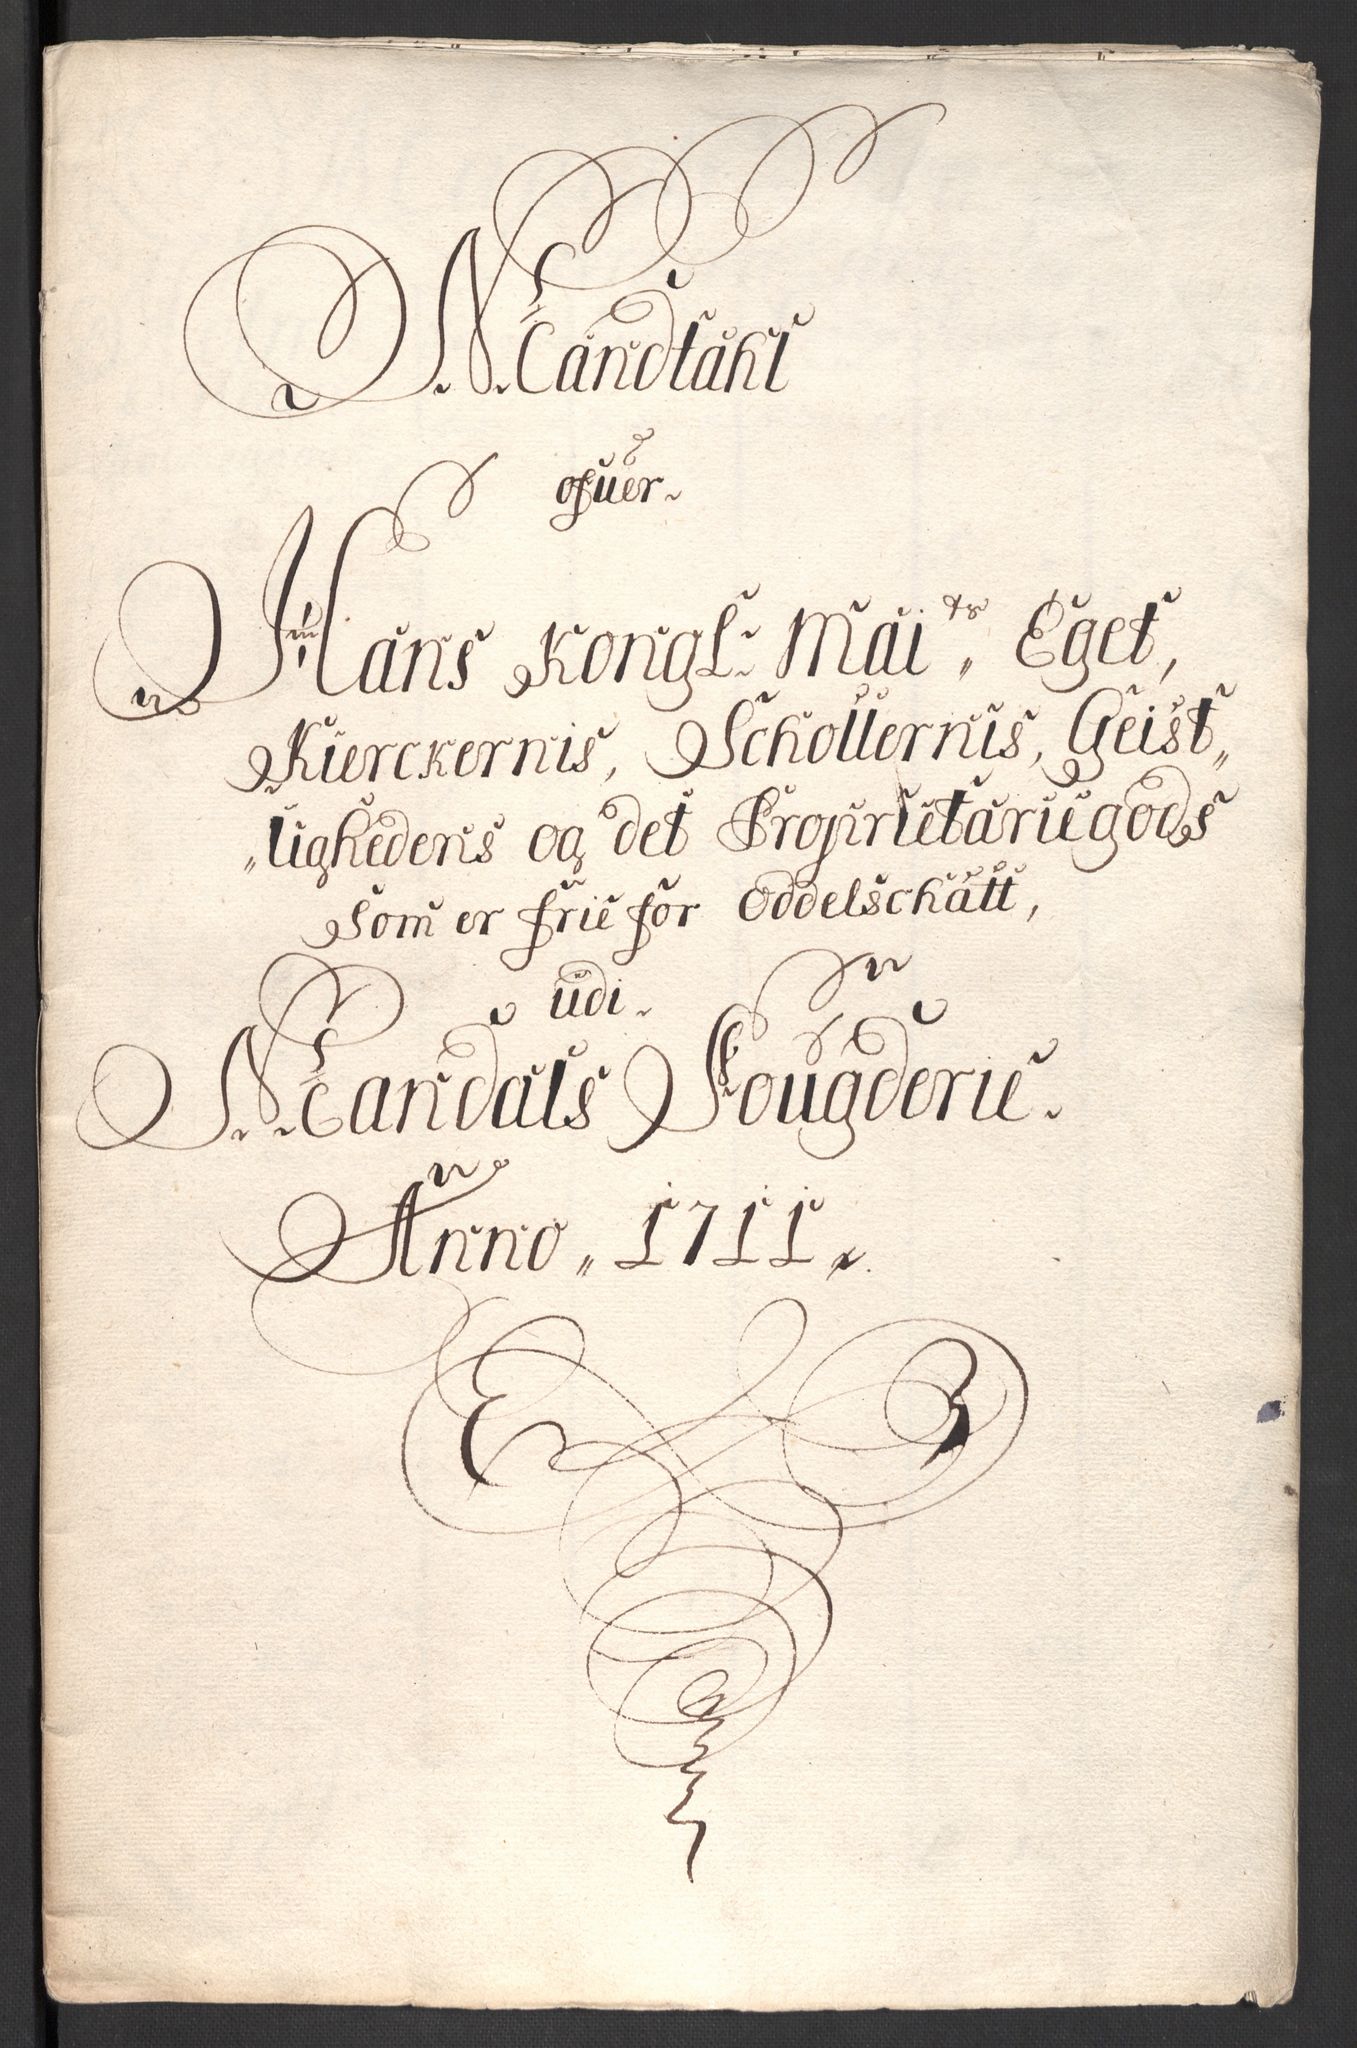 Mandtahl
ofuer
Hans Kongl: Mai:ts Eget,
Kierckernis, Schollernis, Geist„
„lighedens og det Proprietariegods
som er frie for Oddelschatt,
udi
Mandals Fougderie
Anno 1711